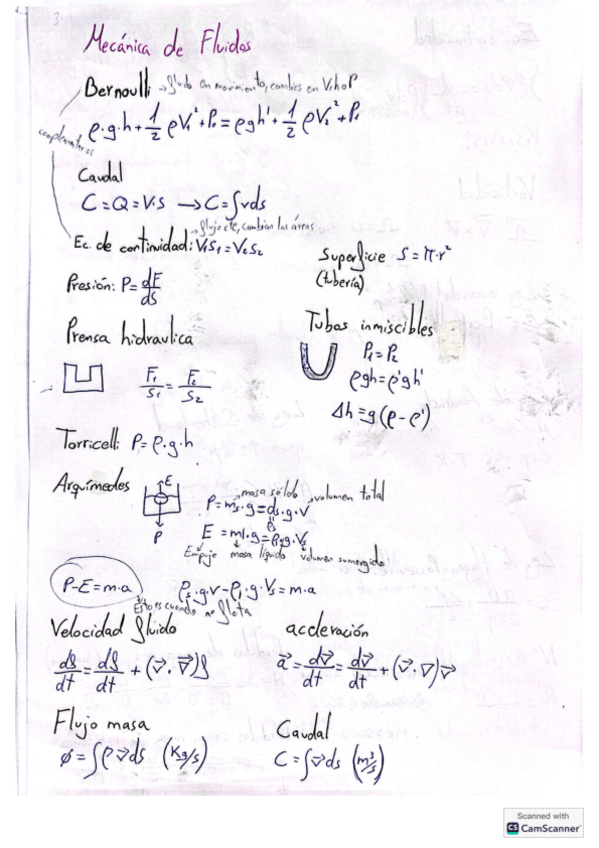 Mecánica de Fluidos
Bernoulli → fluido en movimiento, cambios en V, h o P
ρ·g·h + 1/2 ρV₁² + P₀ = ρgh' + 1/2 ρV₂² + P₁
complementarios
Caudal
C = Q = V·S → C = ∫vds
→ flujo cte, cambian las áreas
Ec. de continuidad: V₁S₁ = V₂S₂
Superficie S = π·r²
(tubería)
Presión: P = dF/ds
Prensa hidraulica
F₁/S₁ = F₂/S₂
Tubos inmiscibles
P₁ = P₂
ρgh = ρ'gh'
Δh = g(ρ - ρ')
Torricelli: P = ρ·g·h
Arquímedes
E
P
masa sólido
volumen total
P = ms·g = ds·g·v
ρs
E = ml·g = ρl·g·Vs
Empuje masa líquido volumen sumergido
P-E = m·a
ρs·g·v - ρl·g·Vs = m·a
Esto es cuando no flota
Velocidad fluido
dρ/dt = dρ/dt + (v⃗·∇⃗)ρ
aceleración
a⃗ = dv⃗/dt = dv⃗/dt + (v⃗·∇)v⃗
Flujo masa
φ = ∫ρv⃗ds (Kg/s)
Caudal
C = ∫v⃗ds (m³/s)
Scanned with
CS CamScanner